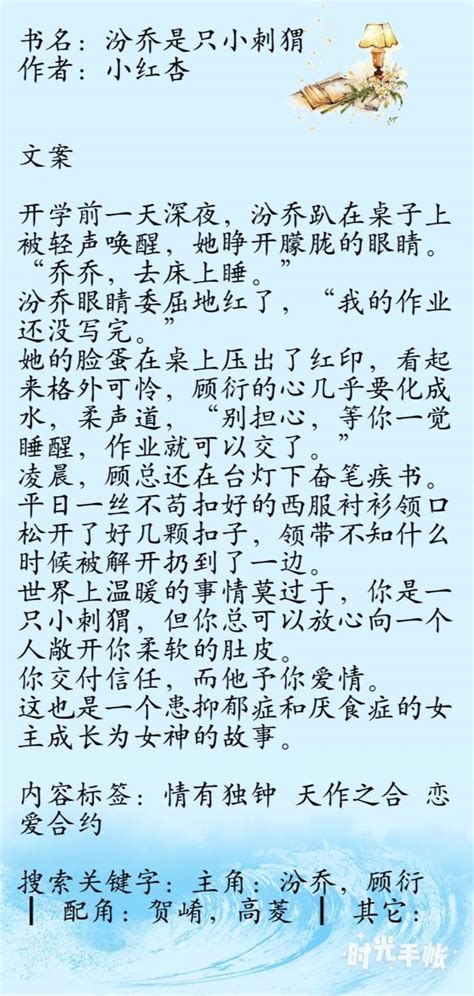 书名：汾乔是只小刺猬
作者：小红杏
文案
开学前一天深夜，汾乔趴在桌子上
被轻声唤醒，她睁开朦胧的眼睛。
“乔乔，去床上睡。”
汾乔眼睛委屈地红了，“我的作业
还没写完。”
她的脸蛋在桌上压出了红印，看起
来格外可怜，顾衍的心几乎要化成
水，柔声道，“别担心，等你一觉
睡醒，作业就可以交了。”
凌晨，顾总还在台灯下奋笔疾书。
平日一丝不苟扣好的西服衬衫领口
松开了好几颗扣子，领带不知什么
时候被解开扔到了一边。
世界上温暖的事情莫过于，你是一
只小刺猬，但你总可以放心向一个
人敞开你柔软的肚皮。
你交付信任，而他予你爱情。
这也是一个患抑郁症和厌食症的女
主成长为女神的故事。
内容标签：情有独钟 天作之合 恋
爱合约
搜索关键字：主角：汾乔，顾衍
┃ 配角：贺崤，高菱 ┃ 其它：
时光手帐